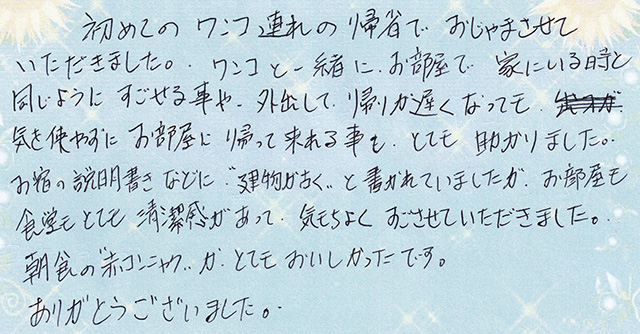 初めての ワンコ連れの帰省で おじゃまさせて
いただきました。ワンコと一緒に、お部屋で 家にいる時と
同じように すごせる事や、外出して、帰りが遅くなっても、
気を使やずに お部屋に 帰って来れる事も、とても 助かりました。
お宿の説明書きなどに、"建物が古く"と書かれていましたが、お部屋も
食堂も とても 清潔感があって、気もちよく すごさせていただきました。
朝食の"赤コンニャク"が、とても おいしかったです。
ありがとうございました。